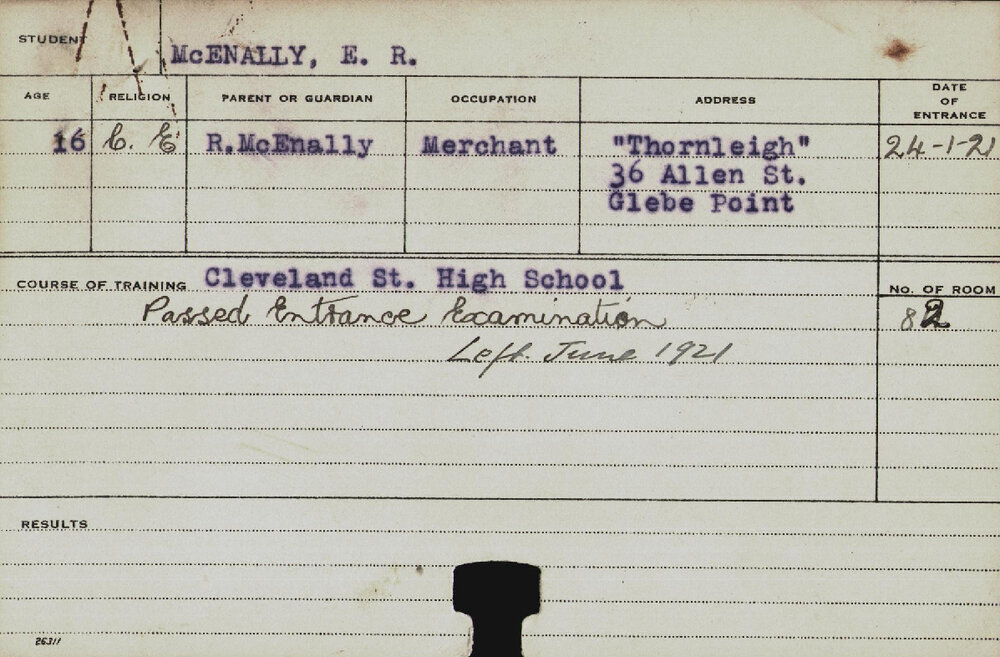 STUDENT McENALLY, E. R.
AGE RELIGION PARENT OR GUARDIAN OCCUPATION ADDRESS DATE OF ENTRANCE
16 C. E R.McEnally Merchant "Thornleigh" 24-1-21
36 Allen St.
Glebe Point
COURSE OF TRAINING Cleveland St. High School No. OF ROOM
Passed Entrance Examination 82
Left June 1921
RESULTS
26311